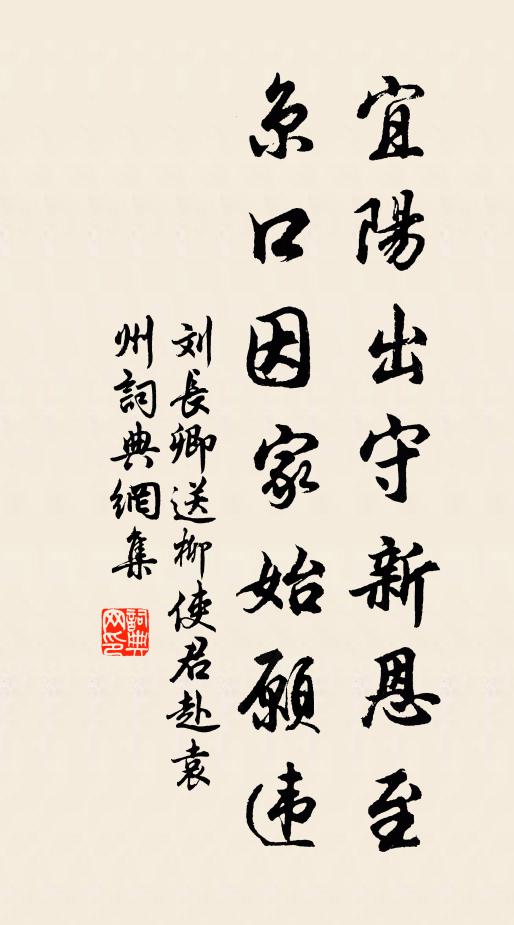 宜陽出守新恩至
京口因家始願违
刘長卿送柳使君赴袁
州詞典網集
詞典网印